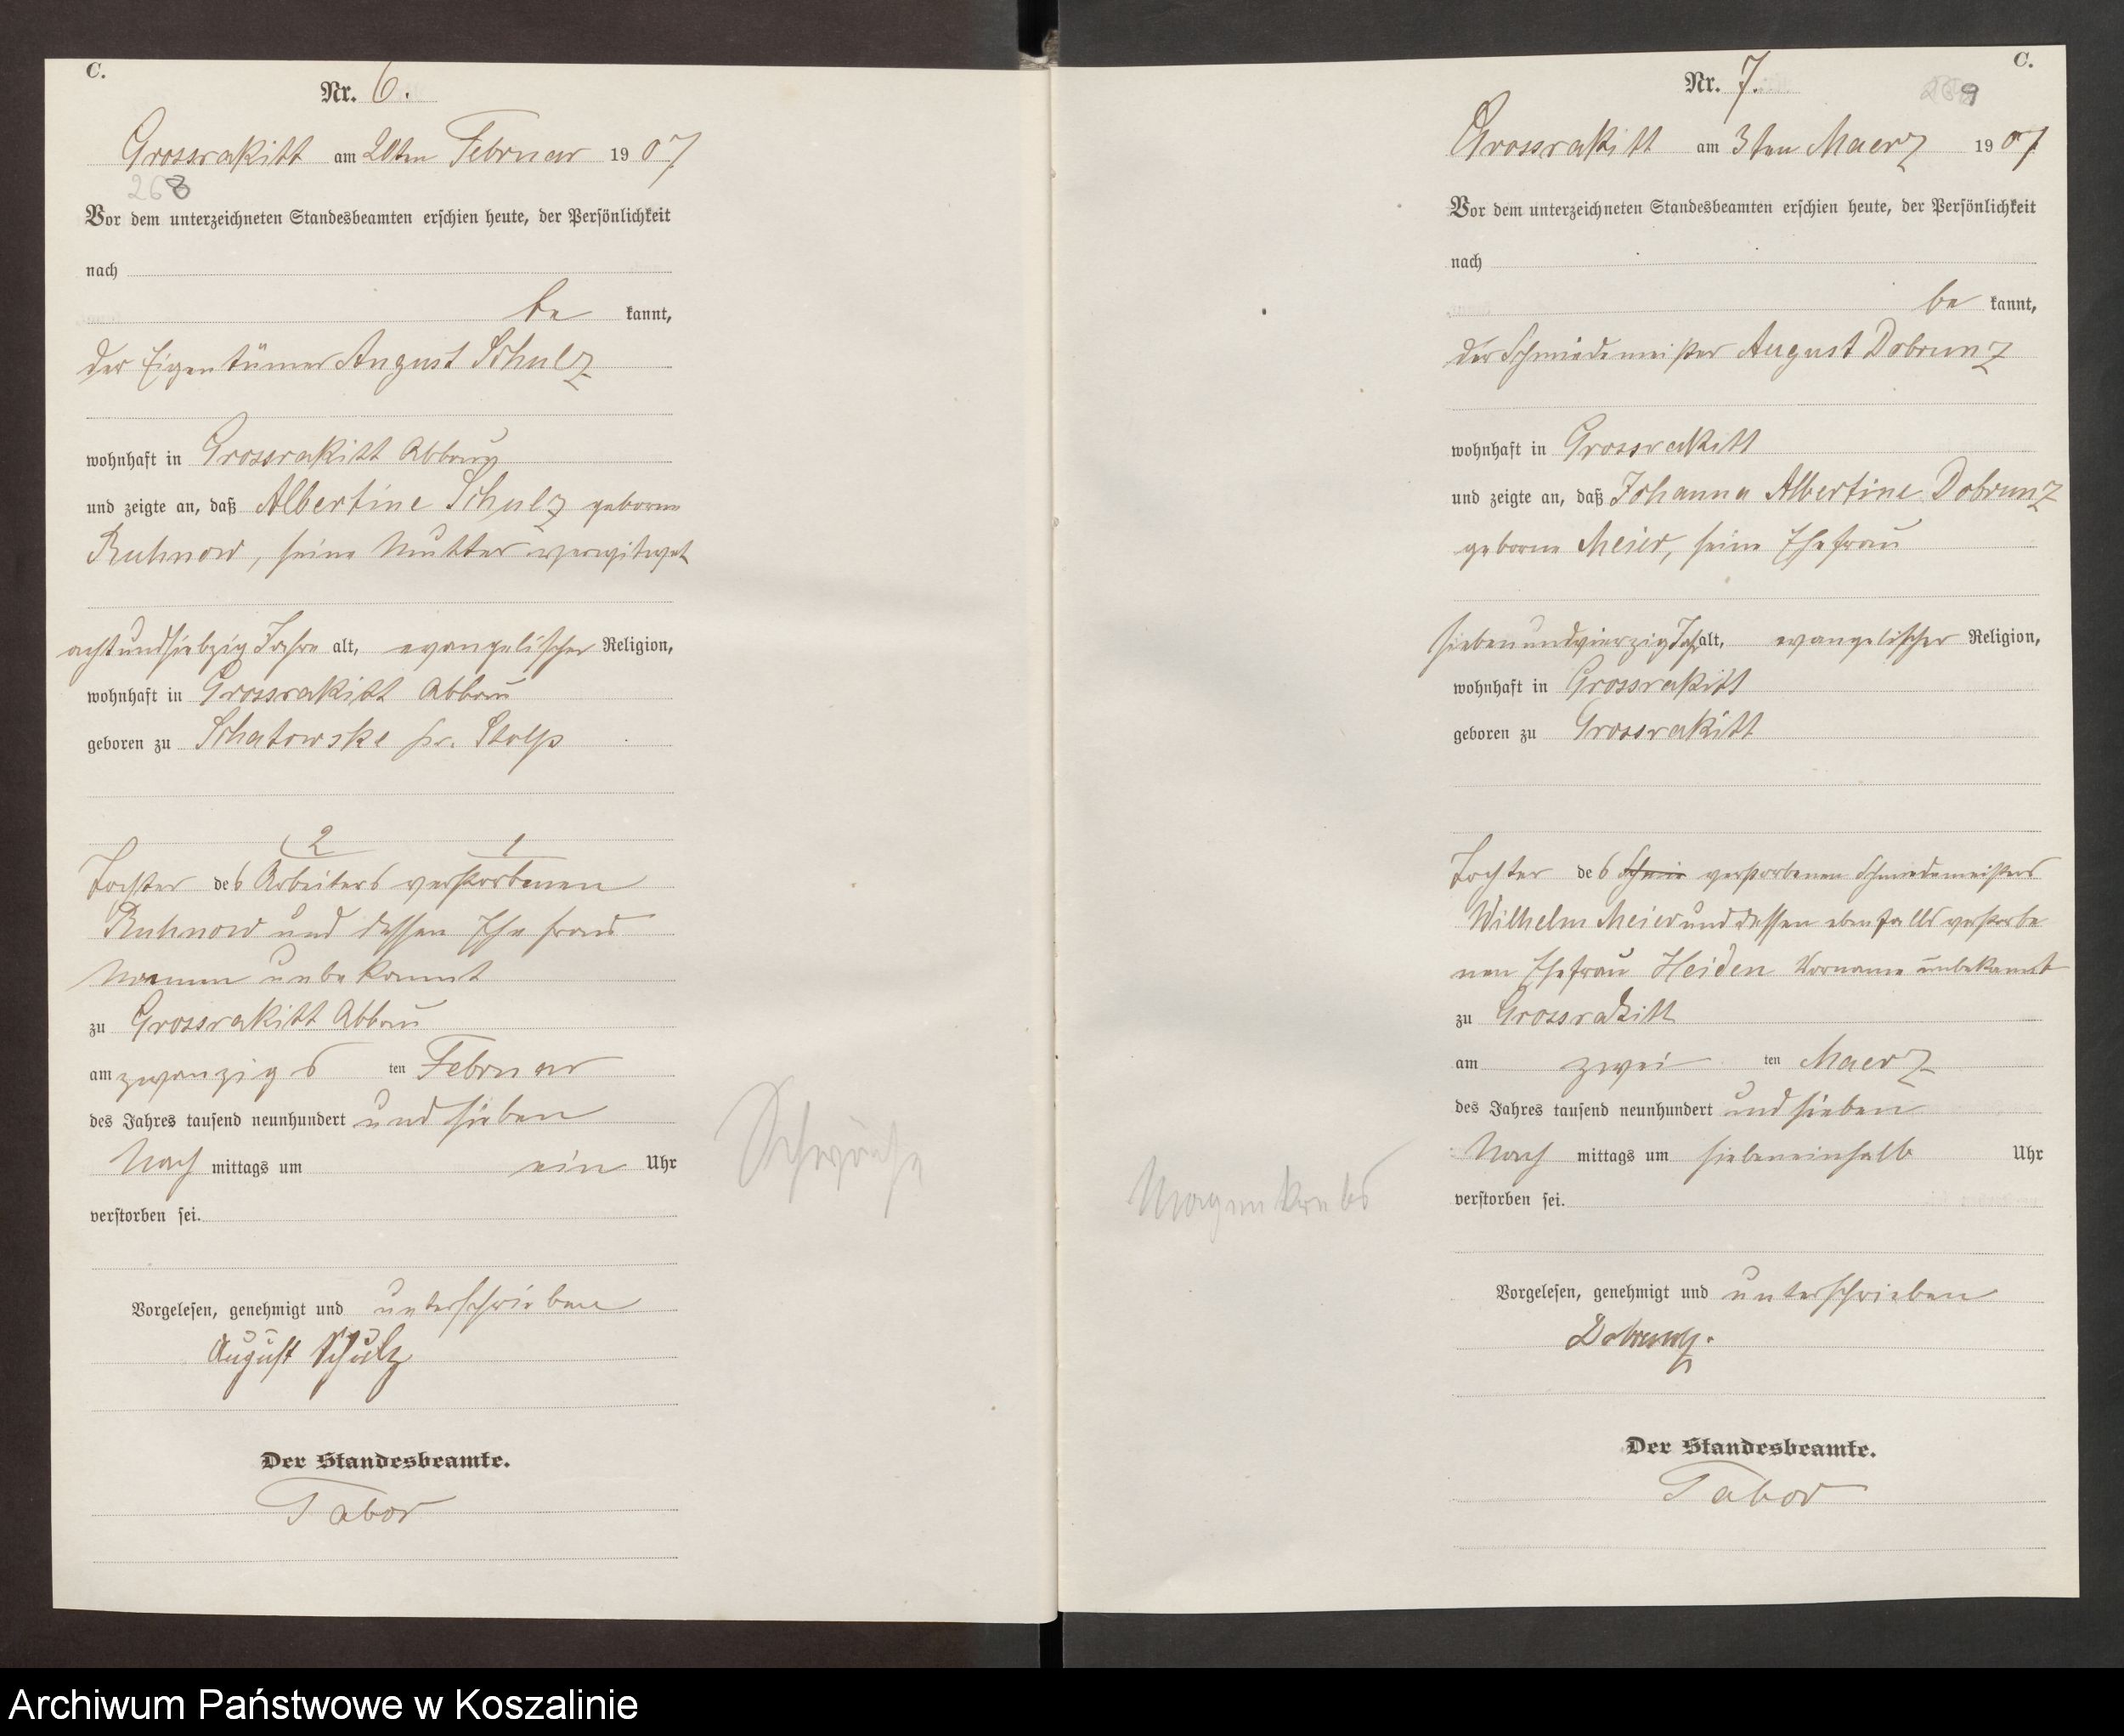 C.
Nr. 6.
Grossrakitt am 20ten Februar 1907
268
Vor dem unterzeichneten Standesbeamten erschien heute, der Persönlichkeit
nach
be kannt,
der Eigentümer August Schulz
wohnhaft in Grossrakitt Abbau
und zeigte an, daß Albertine Schulz geborene
Ruhnow, seine Mutter verwitwet
achtundsiebzig Jahre alt, evangelischer Religion,
wohnhaft in Grossrakitt Abbau
geboren zu Schatowske Kr. Stolp
2 1
Tochter des Arbeiters verstorbenen
Ruhnow und dessen Ehefrau
Namen unbekannt
zu Grossrakitt Abbau
am zwanzigs ten Februar
des Jahres tausend neunhundert und sieben
Nach mittags um ein Uhr
verstorben sei.
Vorgelesen, genehmigt und unterschrieben
August Schulz
Der Standesbeamte.
Tabor
Schwäche
C.
Nr. 7.
269
Grossrakitt am 3ten Maerz 1907
Vor dem unterzeichneten Standesbeamten erschien heute, der Persönlichkeit
nach
be kannt,
der Schmiedemeister August Dobrunz
wohnhaft in Grossrakitt
und zeigte an, daß Johanna Albertine Dobrunz
geborne Meier, seine Ehefrau
siebenundvierzig Jahr alt, evangelischer Religion,
wohnhaft in Grossrakitt
geboren zu Grossrakitt
Tochter des Schmie verstorbenen Schmiedemeisters
Wilhelm Meier und dessen ebenfalls verstorbe
nen Ehefrau Heiden Vorname unbekannt
zu Grossrakitt
am zwei ten Maerz
des Jahres tausend neunhundert und sieben
Nach mittags um siebeneinhalb Uhr
verstorben sei.
Vorgelesen, genehmigt und unterschrieben
Dobrunz.
Der Standesbeamte.
Tabor
Magenkrebs
Archiwum Państwowe w Koszalinie